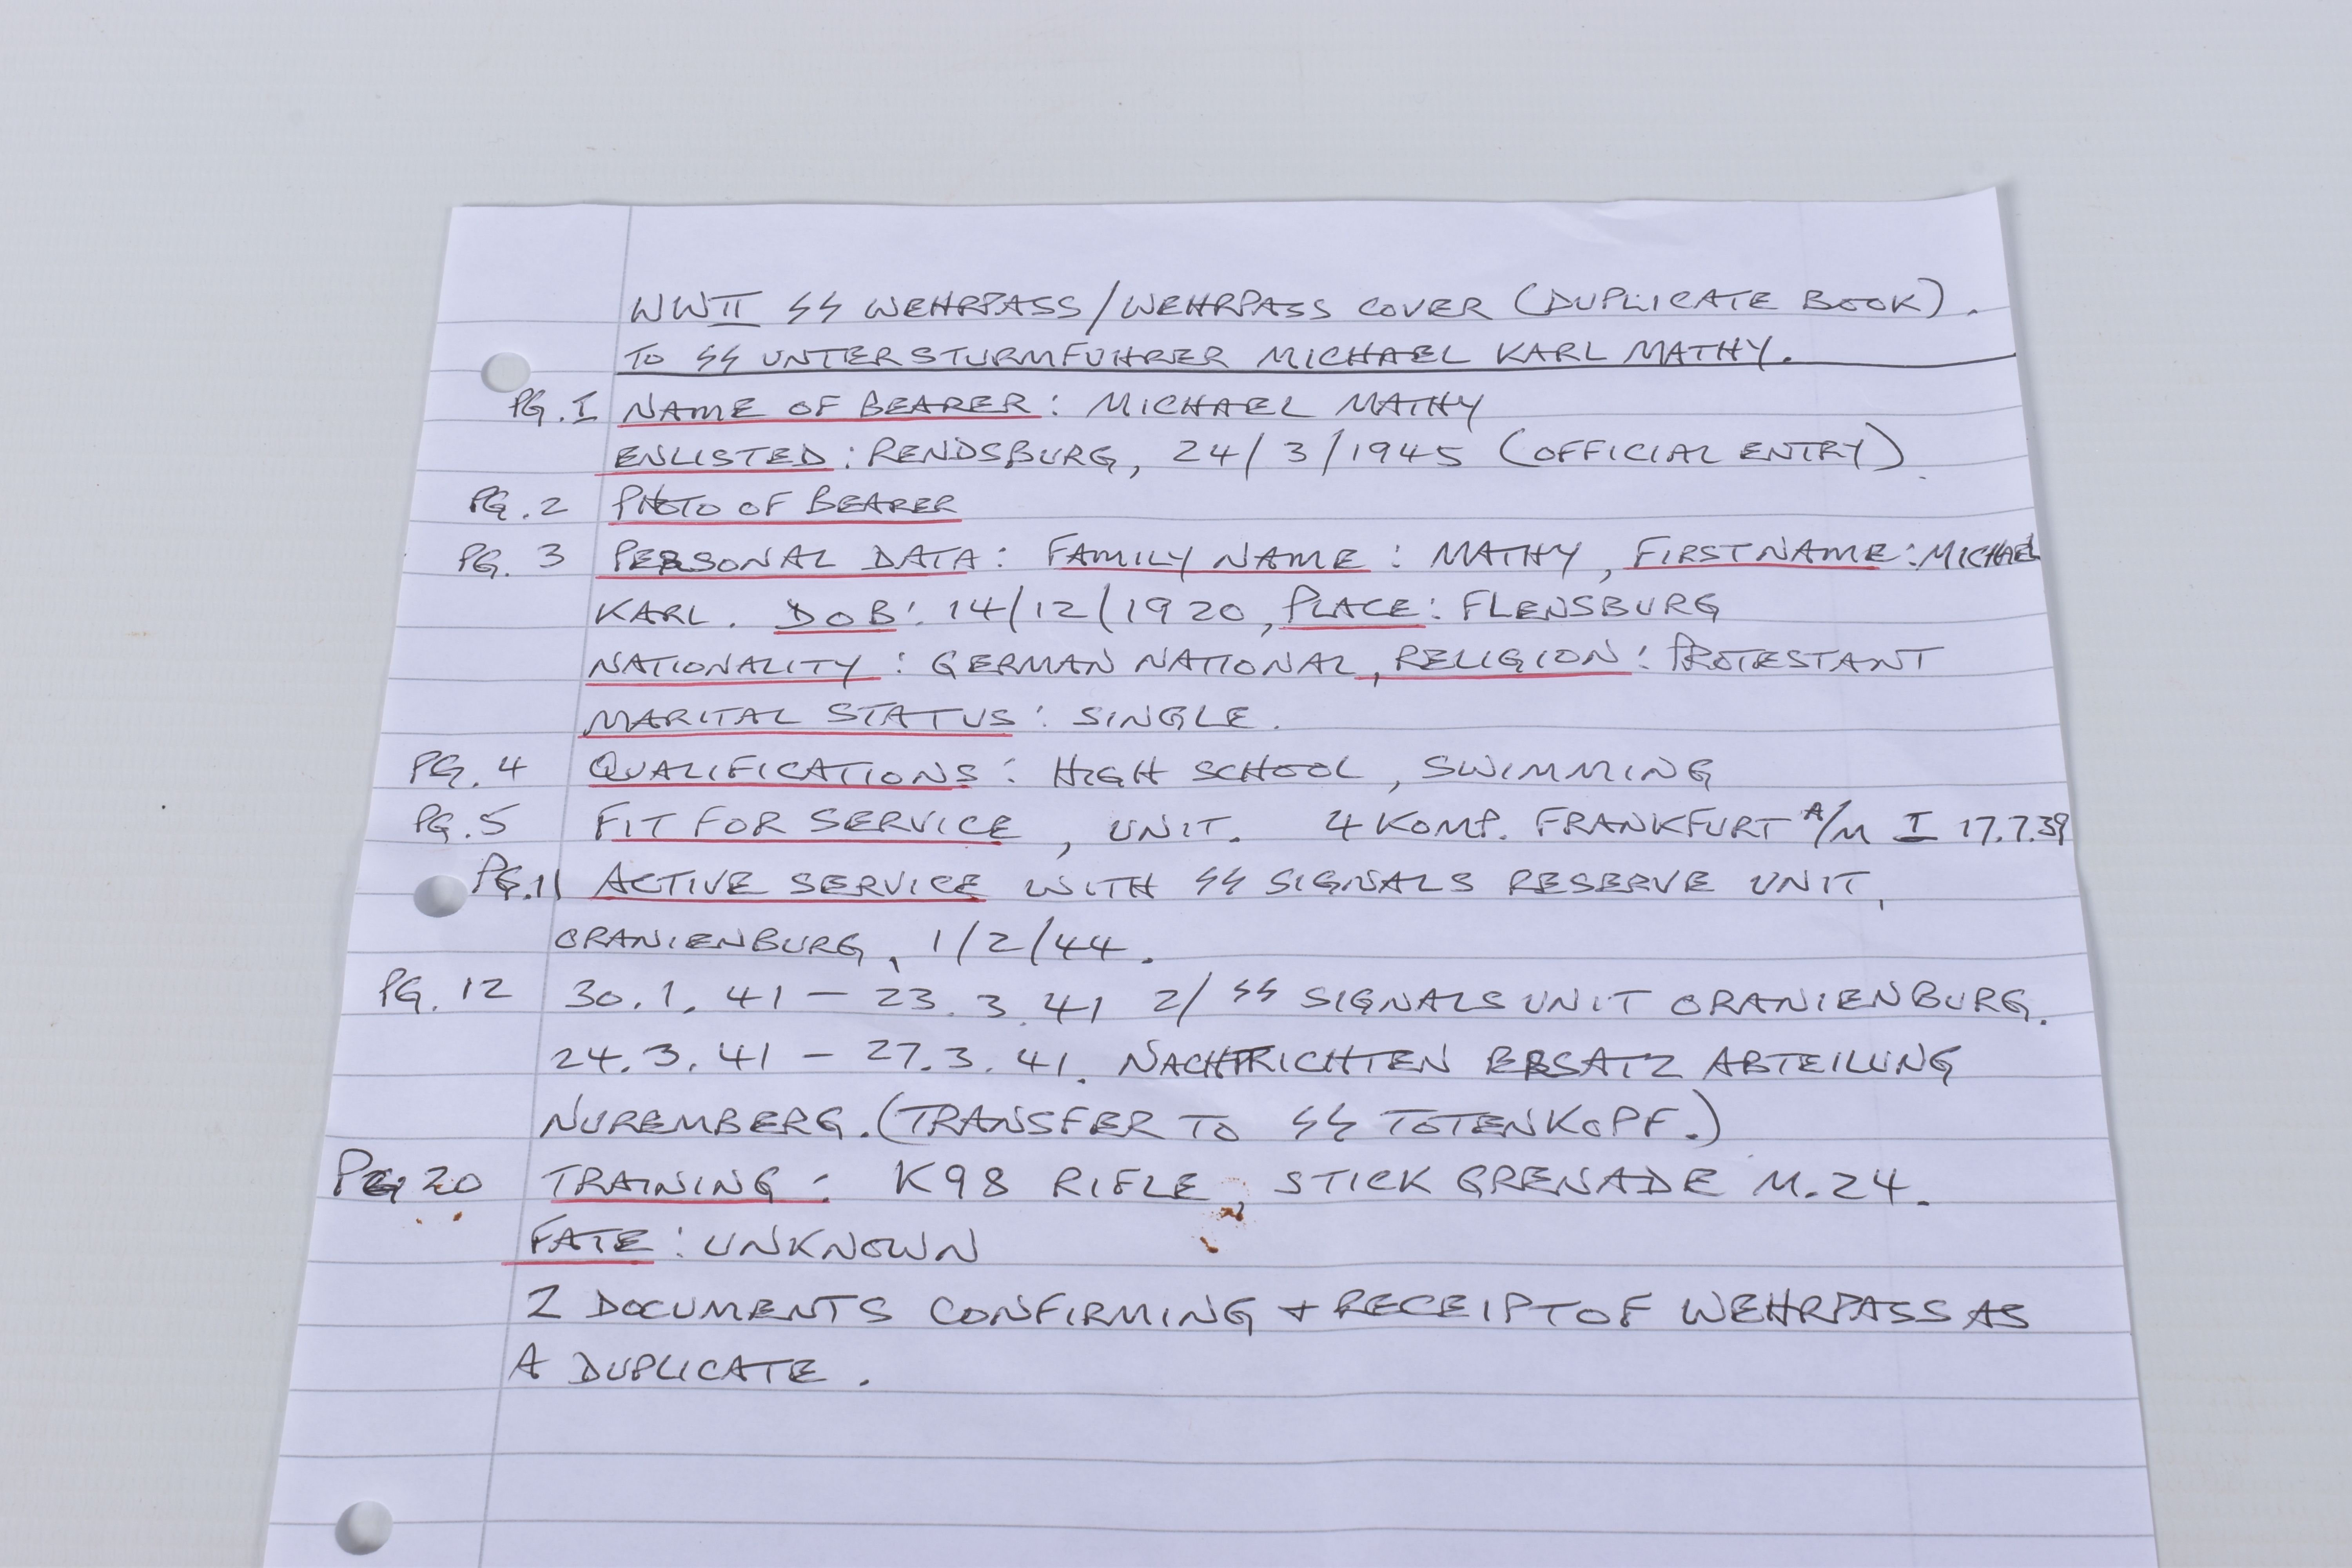 WWII SS WEHRPASS/WEHRPASS COVER (DUPLICATE BOOK).
TO SS UNTERSTURMFUHRER MICHAEL KARL MATHY.
PG. I NAME OF BEARER: MICHAEL MATHY
ENLISTED: RENDSBURG, 24/3/1945 (OFFICIAL ENTRY)
PG. 2 PHOTO OF BEARER
PG. 3 PERSONAL DATA: FAMILY NAME: MATHY, FIRST NAME: MICHAEL
KARL. DOB: 14/12/1920, PLACE: FLENSBURG
NATIONALITY: GERMAN NATIONAL, RELIGION: PROTESTANT
MARITAL STATUS: SINGLE.
PG. 4 QUALIFICATIONS: HIGH SCHOOL, SWIMMING
PG. 5 FIT FOR SERVICE, UNIT. 4 KOMP. FRANKFURT A/M I 17.7.39
PG. 11 ACTIVE SERVICE WITH SS SIGNALS RESERVE UNIT,
ORANIENBURG, 1/2/44.
PG. 12 30.1.41 – 23.3.41 2/ SS SIGNALS UNIT ORANIENBURG.
24.3.41 – 27.3.41. NACHTRICHTEN ERSATZ ABTEILUNG
NUREMBERG. (TRANSFER TO SS TOTENKOPF.)
PG 20 TRAINING: K98 RIFLE, STICK GRENADE M.24.
FATE: UNKNOWN
2 DOCUMENTS CONFIRMING + RECEIPT OF WEHRPASS AS
A DUPLICATE.